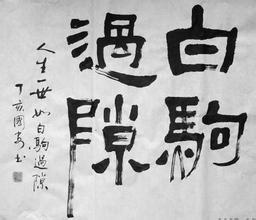 白駒
過隙
人生一世如白駒過隙
丁亥國安書